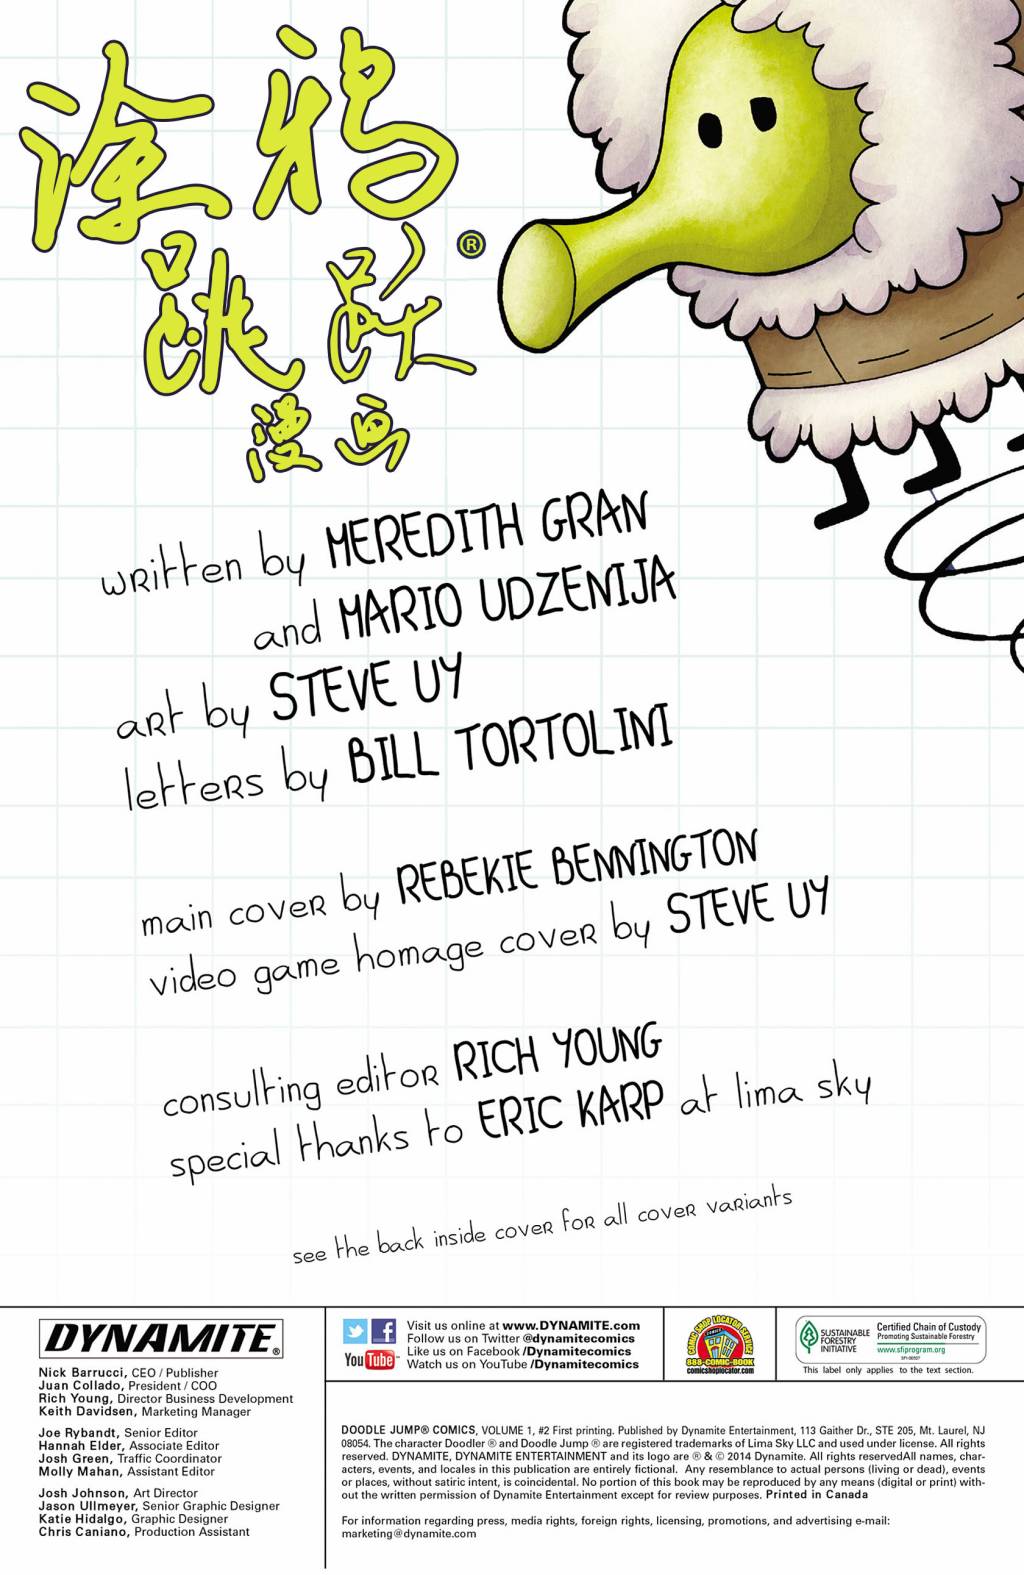 涂鸦
跳跃®
漫画
written by MEREDITH GRAN
and MARIO UDZENIJA
art by STEVE UY
letters by BILL TORTOLINI
main cover by REBEKIE BENNINGTON
video game homage cover by STEVE UY
consulting editor RICH YOUNG
special thanks to ERIC KARP at lima sky
see the back inside cover for all cover variants
DYNAMITE®
Nick Barrucci, CEO / Publisher
Juan Collado, President / COO
Rich Young, Director Business Development
Keith Davidsen, Marketing Manager
Joe Rybandt, Senior Editor
Hannah Elder, Associate Editor
Josh Green, Traffic Coordinator
Molly Mahan, Assistant Editor
Josh Johnson, Art Director
Jason Ullmeyer, Senior Graphic Designer
Katie Hidalgo, Graphic Designer
Chris Caniano, Production Assistant
You Tube
Visit us online at www.DYNAMITE.com
Follow us on Twitter @dynamitecomics
Like us on Facebook /Dynamitecomics
Watch us on YouTube /Dynamitecomics
COMIC SHOP LOCATOR SERVICE
COMICS
888-COMIC-BOOK
comicshoplocator.com
SUSTAINABLE
FORESTRY
INITIATIVE
Certified Chain of Custody
Promoting Sustainable Forestry
www.sfiprogram.org
SFI-00507
This label only applies to the text section.
DOODLE JUMP® COMICS, VOLUME 1, #2 First printing. Published by Dynamite Entertainment, 113 Gaither Dr., STE 205, Mt. Laurel, NJ
08054. The character Doodler ® and Doodle Jump ® are registered trademarks of Lima Sky LLC and used under license. All rights
reserved. DYNAMITE, DYNAMITE ENTERTAINMENT and its logo are ® & © 2014 Dynamite. All rights reservedAll names, char-
acters, events, and locales in this publication are entirely fictional. Any resemblance to actual persons (living or dead), events
or places, without satiric intent, is coincidental. No portion of this book may be reproduced by any means (digital or print) with-
out the written permission of Dynamite Entertainment except for review purposes. Printed in Canada
For information regarding press, media rights, foreign rights, licensing, promotions, and advertising e-mail:
marketing@dynamite.com